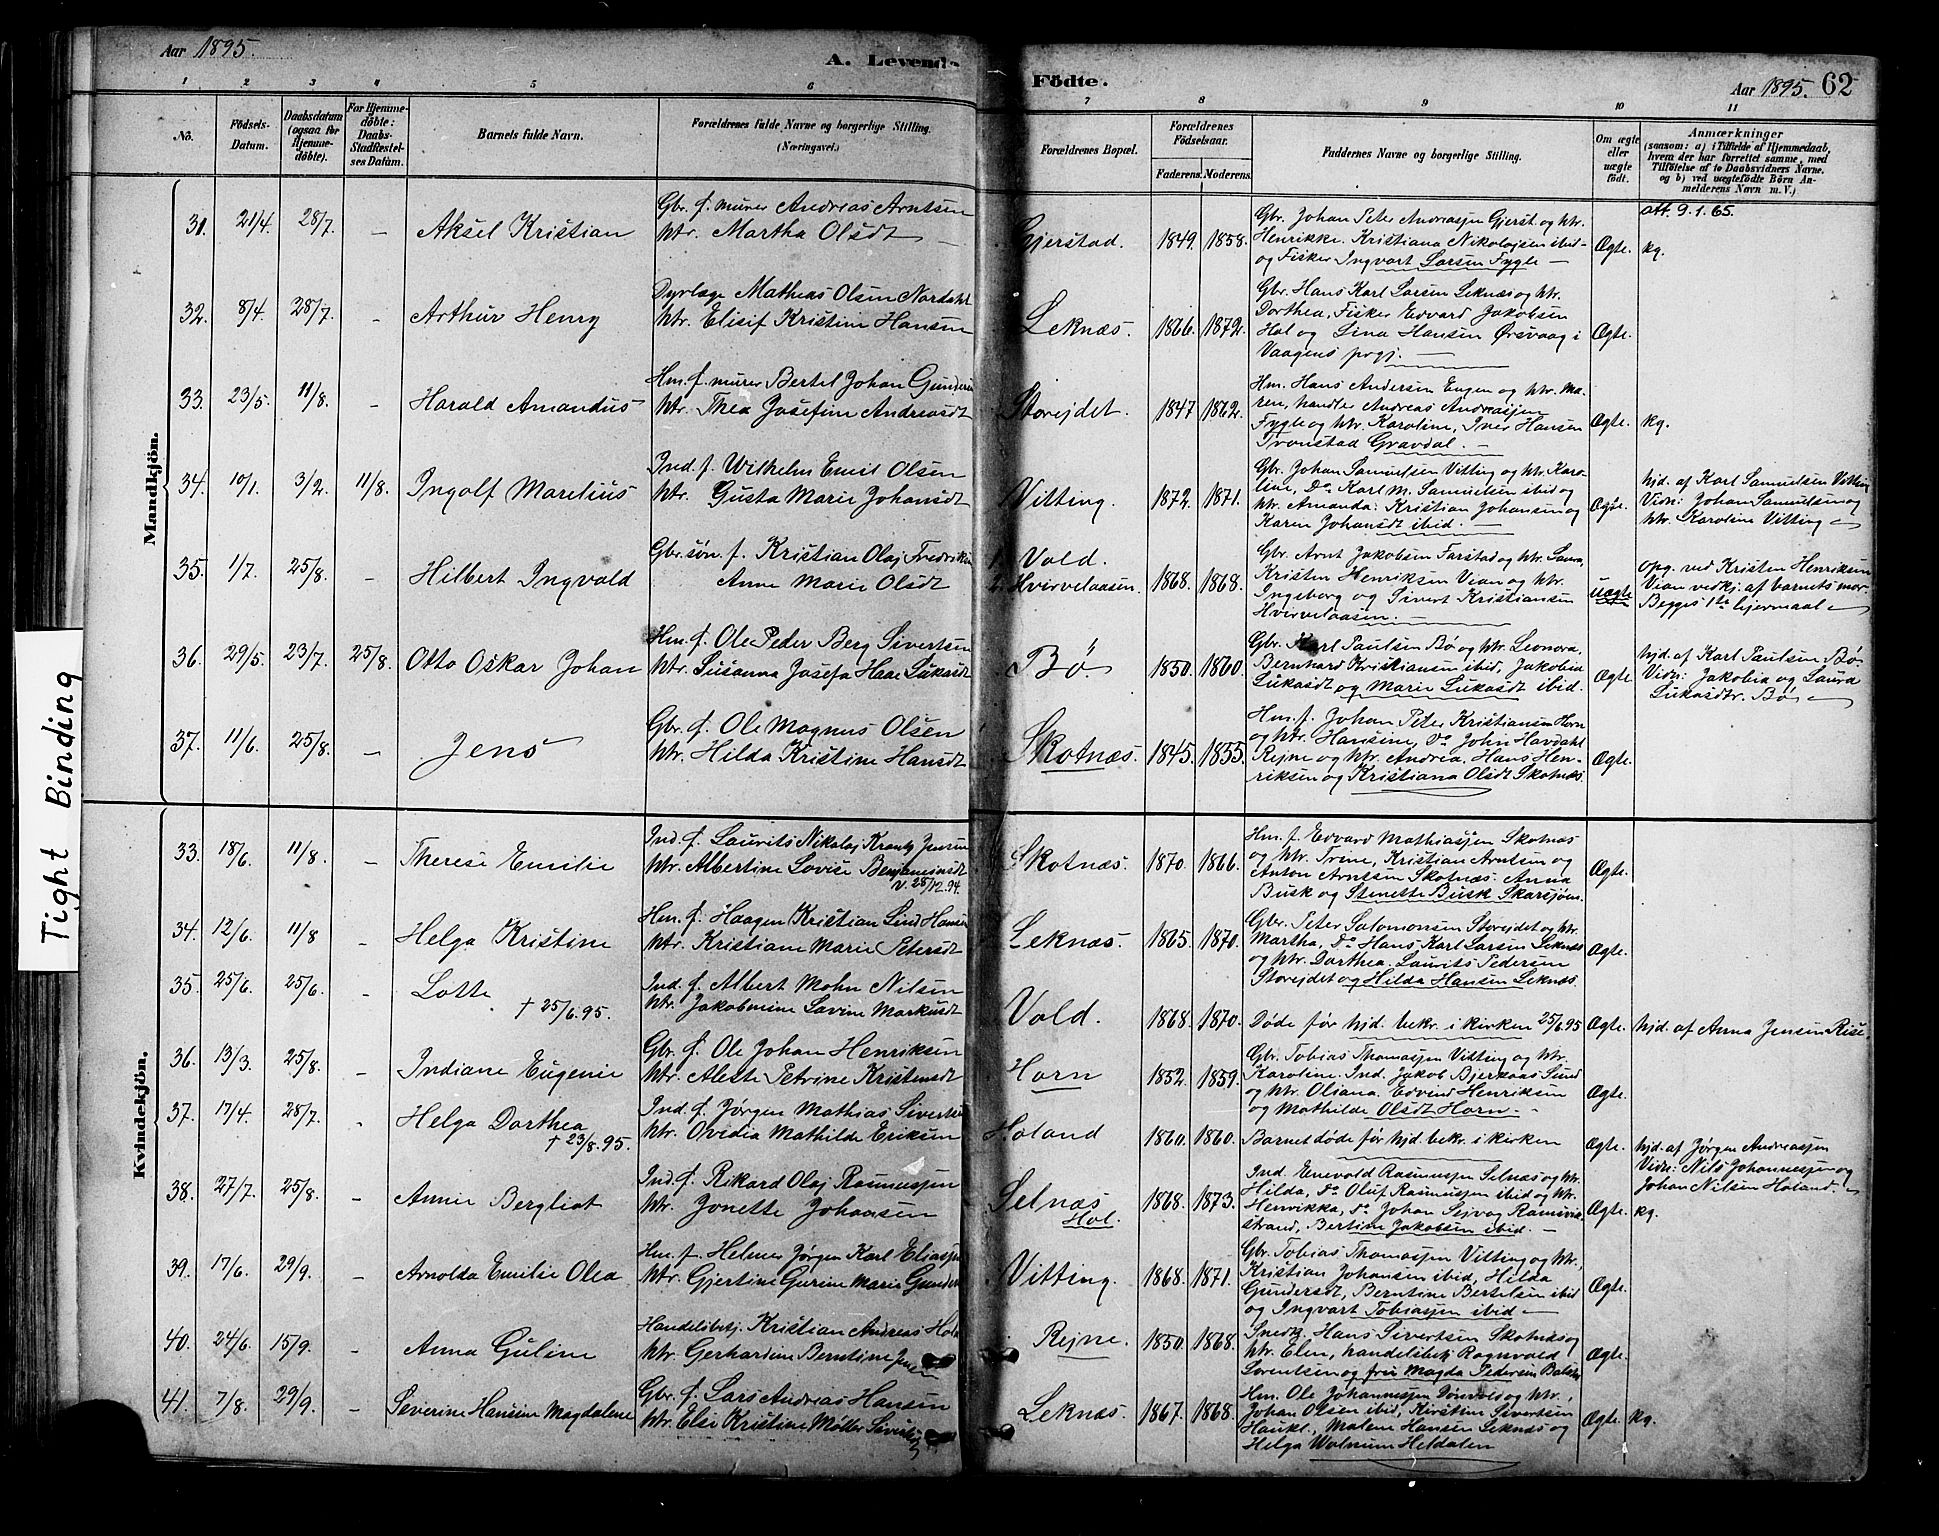 Aar 1895.
A. Levende
Födte.
Aar 1895.
62
1 2 3 4 5 6 7 8 9 10 11
No.
Födsels-
Datum.
Daabsdatum
(ogsaa for
Hjemme-
döbte).
For Hjemme-
döbte:
Daabs-
Stadfæstel-
ses Datum.
Barnets fulde Navn.
Forældrenes fulde Navne og borgerlige Stilling.
(Næringsvei.)
Forældrenes Bopæl.
Forældrenes
Födselsaar.
Faderens. Moderens.
Faddernes Navne og borgerlige Stilling.
Om ægte
eller
uægte
födt.
Anmærkninger
(saasom: a) i Tilfælde af Hjemmedaab,
hvem der har forrettet samme, med
Tilföielse af to Daabsvidners Navne,
og b) ved uægtefödte Börn An-
melderens Navn m. V.)
Mandkjön.
31. 21/4. 28/7. - Aksel Kristian
Gbr. f. murer Andreas Arntsen
Htr. Martha Olsdt
Gjerstad. 1849. 1858.
Gbr. Johan Peter Andreasjen Gjerst. og htr.
Henrikke. Kristiana Nikolajsen ibid-
og Fisker Ingvart Larsen Fygle -
Ægte. att. 9.1.65.
kg.
32. 8/4. 28/7. - Arthur Henry
Dyrlæge Mathias Olsen Nordahl
Htr. Elisif Kristine Hansen
Leknæs. 1866. 1872.
Gbr. Hans Karl Larsen Leknæs og htr.
Dorthea, Fisker Edvard Jakobsen
Hol og Lina Hansen Ørsvaag i
Vaagens prgj. -
Ægte.
33. 23/5. 11/8. - Harald Amandus
Hm. f. murer Bertel Johan Gunders
Htr. Thea Josefine Andreasdt
Storejdet. 1847 1862.
Hm. Hans Andersen Eugen og htr. Ma-
ren, handler Andreas Andreasjen
Fygle og htr. Karoline, Iver Hansen
Tronstad Gravdal. -
Ægte. kg.
34. 10/1. 3/2. 11/8. Ingolf Marelius
Ind. f. Wilhelm Emil Olsen
Htr. Gusta Marie Johansdt
Vitting. 1872. 1871.
Gbr. Johan Samuelsen Vitting og htr. Karo-
line, Do Karl M. Samuelsen ibid og
htr. Amanda. Kristian Johansen og
Karen Johansdt ibid. -
Ægte.
hjd. af Karl Samuelsen Vitting
Vidn: Johan Samuelsen og
htr. Karoline Vitting
35. 1/7. 25/8. - Hilbert Ingvald
Gbr. søn. f. Kristian Olaj Fredriksen
Anne Marie Olsdt
1. Vold.
2. Hvirvelaasen. 1868. 1868.
Gbr. Arnt Jakobsen Farstad og htr. Laura,
Kristen Henriksen Vean og htr.
Ingeborg og Sivert Kristiansen
Hvirvelaasen. -
uægte
opg. ved Kristen Henriksen
Vean vedkj. af barnets mor.
Begges 1ste lejermaal
36. 29/5. 23/7. 25/8. Otto Oskar Johan
Hm. f. Ole Peder Berg Sivertsen
Htr. Susanna Josefa Haae Lukasdt
Bø. 1850. 1860.
Gbr. Karl Paulsen Bø og htr. Leonora,
Bernhard Kristiansen ibid, Jakobia
Lukasdt og Marie Lukasdt ibid.
Ægte.
hjd. af Karl Paulsen Bø
Vidn: Jakobia og Laura
Lukasdtr. Bø
37. 11/6. 25/8. - Jens
Gbr. f. Ole Magnus Olsen
Htr. Hilda Kristine Hansdt
Skotnæs. 1845. 1855.
Hm. f. Johan Peter Kristiansen Horn
og htr. Hansine, Do John Havdahl
Rejne og htr. Andrea. Hans Hen-
riksen og Kristiana Olsdt Skotnæs
Ægte.
Kvindekjön.
33. 18/6. 11/8. - Therese Emilie
Ind. f. Laurits Nikolaj Krantz Jensen
Htr. Albertine Lovise Benjaminsdt
v. 25/12.94.
Skotnæs. 1870. 1866.
Hm. f. Edvard Mathiasjen Skotnæs
og htr. Trine, Kristian Arntsen og
Anton Arntsen Skotnæs. Anna
Busk og Stenette Busk Skarsjøen.
Ægte.
34. 12/6. 11/8 - Helga Kristine
Hm. f. Haagen Kristian Lind Hansen
Htr. Kristiane Marie Petersdt
Leknæs. 1865. 1870.
Gbr. Peter Salomonsen Storejdet og htr.
Martha, Do Hans Karl Larsen Leknæs
og htr. Dorthea. Laurits Pedersen
Storejdet og Hilda Hansen Leknæs.
Ægte.
35. 25/6. 25/6. - Lotte
† 25/6.95.
Ind. f. Albert Mohn Nilsen
Htr. Jakobmine Lavine Markusdt
Vold. 1868. 1870.
Døde før hjd. bekr. i kirken 25/6.95
Ægte. hjd. af Anna Jensen Rise.
36. 13/3. 25/8. - Indiane Eugenie
Gbr. f. Ole Johan Henriksen
Htr. Aleste Petrine Kristensdt
Horn 1852. 1859.
Gbr. Tobias Thomasjen Vitting og htr.
Karoline. Ind. Jakob Bjerkaas Sund
og htr. Oliana. Edvind Henriksen
og Mathilde Olsdt Horn. -
Ægte.
37. 17/4. 28/7. - Helga Dorthea
† 23/8.95.
Ind. f. Jørgen Mathias Sivertsen
Htr. Ovidia Mathilde Eriksen
Holand 1860. 1860.
Barnet døde før hjd. bekr. i kirken
Ægte.
hjd. af Jørgen Andreasjen
Vidn: Nils Johannesjen og
Johan Nilsen Holand.
38. 27/7. 25/8. - Annie Bergliot
Ind. f. Rikard Olaj Rasmusjen
Htr. Jonette Johansen
Selnæs
Hol. 1868. 1873.
Ind. Enevold Rasmusjen Selnæs og htr.
Hilda, Do Oluf Rasmusjen ibid og htr.
Henrikka, Do Johan Sejvag Ramsvik-
strand, Bertine Jakobsen ibid. -
Ægte. kg.
39. 17/6. 29/9. - Arnolda Emilie Olea
Hm. f. Helmer Jørgen Karl Eliasjen
Htr. Gjertine Gurine Marie Gunders
Vitting. 1868. 1871.
Gbr. Tobias Thomasjen Vitting og htr,
Kristian Johansen ibid, Hilda
Gundersdt, Berntine Bertelsen ibid
og Ingvart Tobiasjen ibid -
Ægte.
40. 24/6. 15/9. - Anna Guline
Handelsbetj. Kristian Andreas Hol
Htr. Gerhardine Berntine Jensen
Rejne. 1850. 1868.
Snedk. Hans Sivertsen Skotnæs og
htr. Elen, handelsbetj. Ragnvald
Lorentsen og fru Magda Pedersen
Ægte.
41. 7/8. 29/9. - Severine Hansine Magdalene
Gbr. f. Lars Andreas Hansen
Htr. Else Kristine Möller Sivertsen
Leknæs. 1867. 1868.
Hm. Ole Johannesjen Dönvold og htr.,
Johan Olsen ibid, Kirstine Sivertsen
Haukl., Malene Hansen Leknæs og
Helga Wolnum Heldalen
Ægte. kg.
Tight Binding